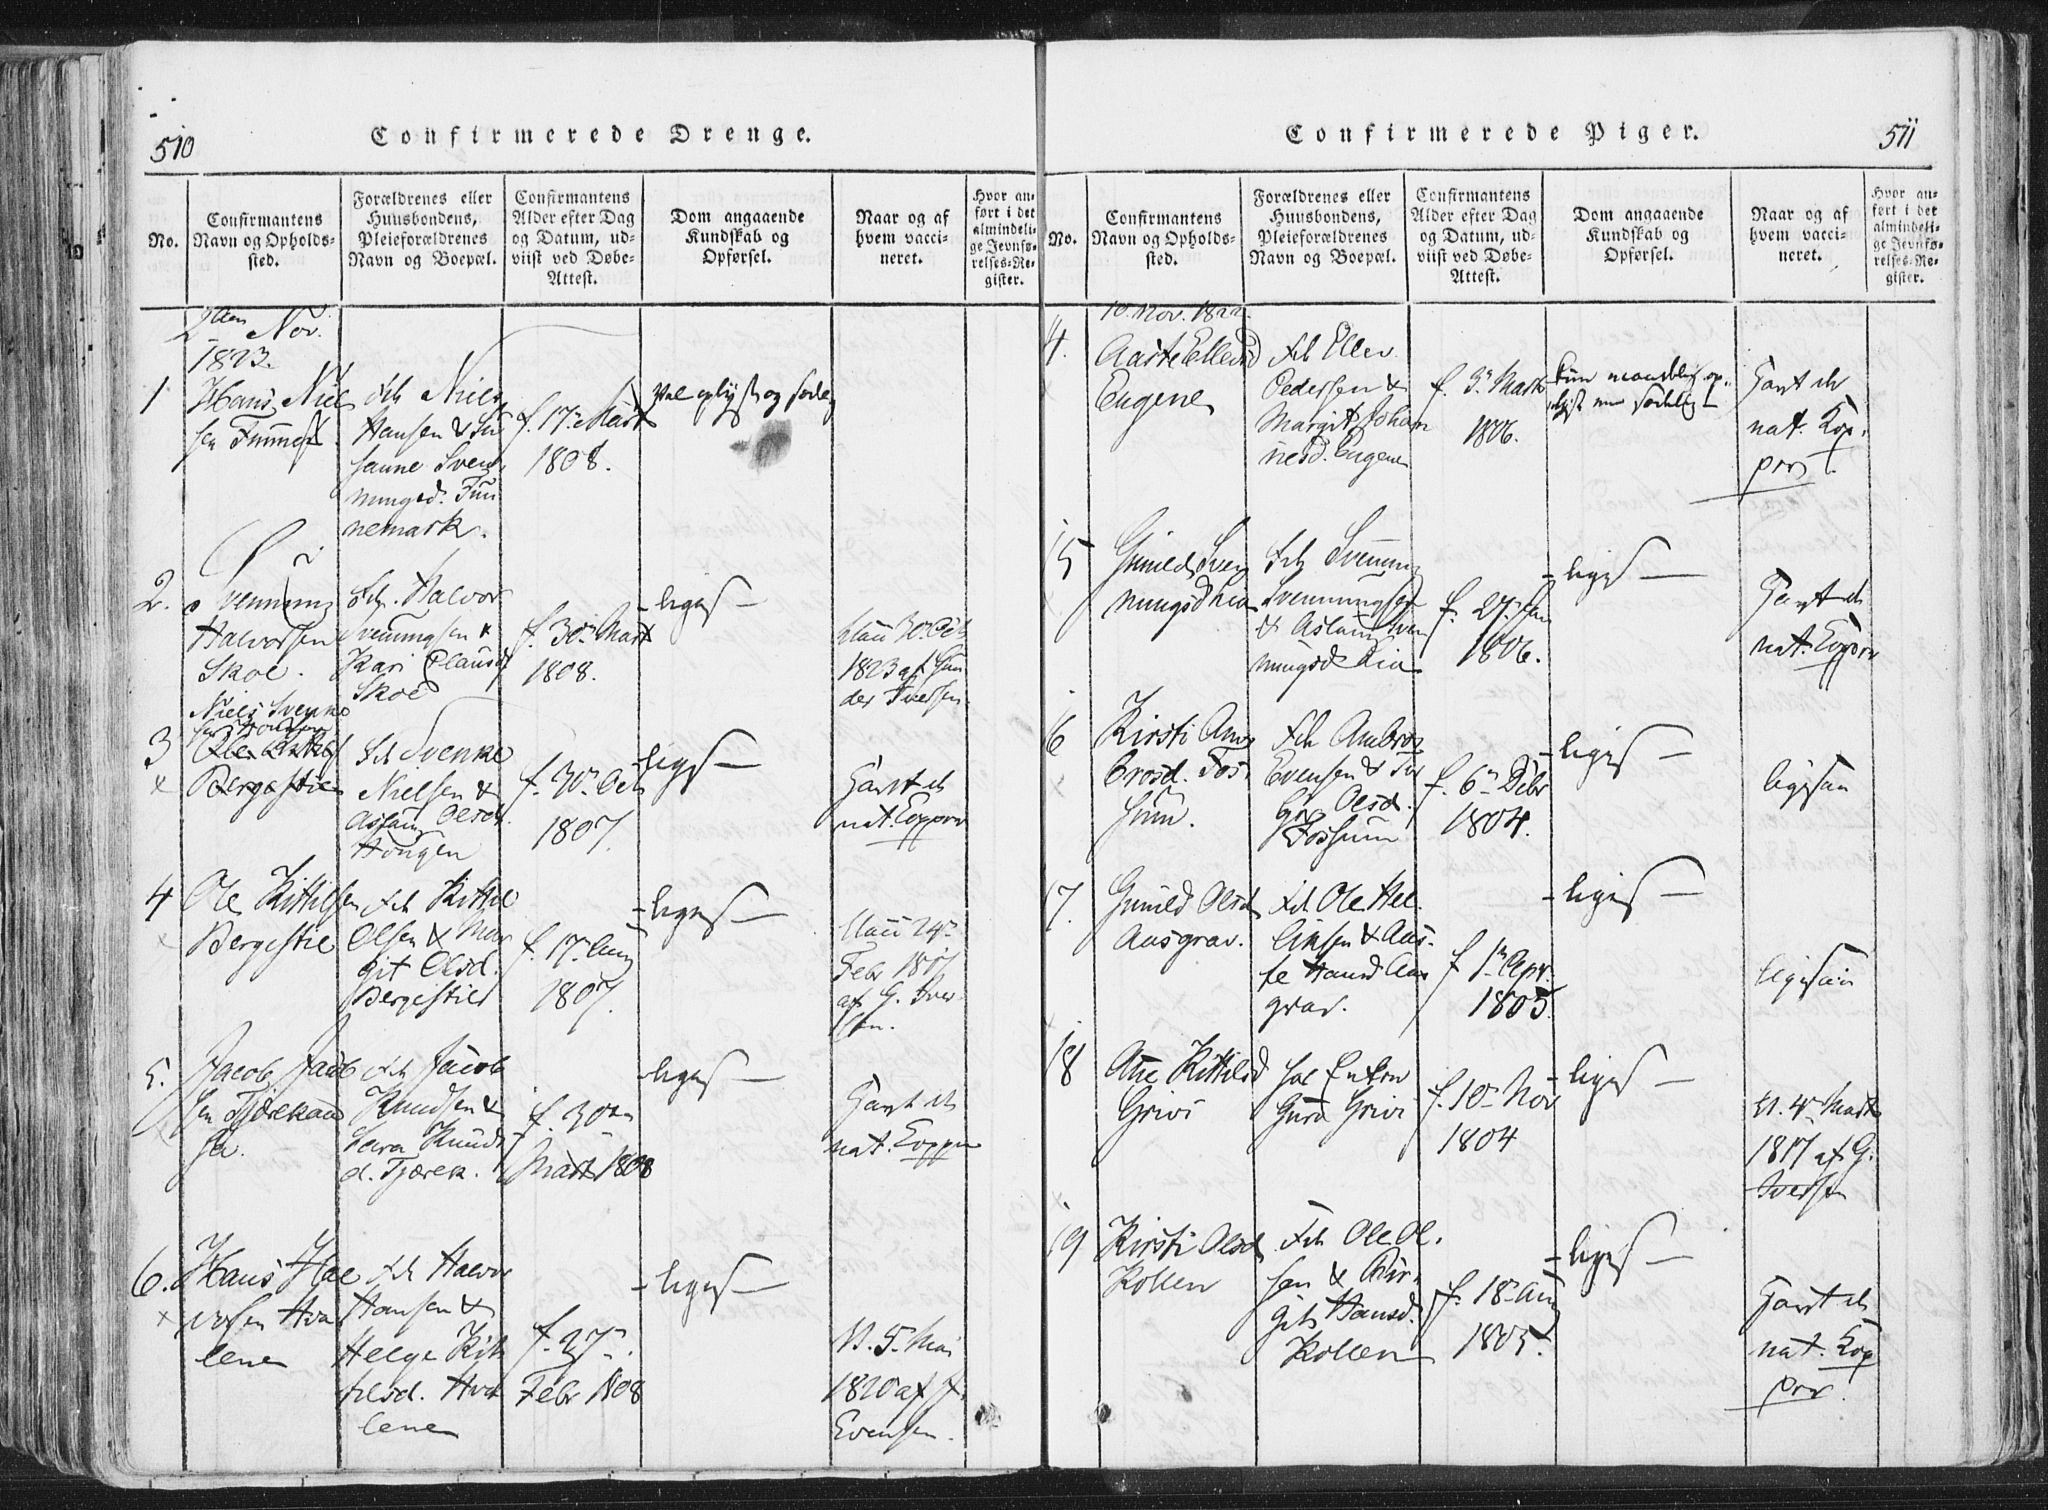 510
Confirmerede Drenge.
No.
Confirmantens
Navn og Opholds-
sted.
Forældrenes eller
Huusbondens,
Pleieforældrenes
Navn og Boepæl.
Confirmantens
Alder efter Dag
og Datum, ud-
viist ved Døbe-
Attest.
Dom angaaende
Kundskab og
Opførsel.
Naar og af
hvem vacci-
neret.
Hvor an-
ført i det
almindeli-
ge Jevnfø-
relses-Re-
gister.
2den Nov.
1823.
1
Hans Niel
sen
Niels
Hansen &
sanne Sven
nungsd. Fun
nemark.
f. 17n Mart
1808.
Vel oplyst og sædelig
2.
Svennung
Halvorsen
Skoe.
Halvor
Svennungsen &
Kari Clausd
Skoe
f. 30n Mart
1808.
- liges -
30 Oct
1823 af Gun
der Iversen.
3
Niels Svenke
sen Hougen
Bergestie
Svenke
Nielsen &
Aslaug Olsd.
Hougen
f. 30n Oct
1807.
- liges -
nat. Kopper
4
Ole Kittilsen
Bergestie
Kittil
Olsen & Mar
git Olsd.
Bergestie
f. 17n Aug
1807.
- liges -
24n
Febr 1817
af G. Iver
sen.
5.
Jacob Jacob
sen
Jacob
Knudsen &
Sara Knuds
d. Tjærek.
f. 30n
Mart 1808
- liges -
nat. Kopper
6.
Hans Hal
vorsen Hva
lene
Halvor
Hansen &
Helge Kit
tilsd. Hva
lene
f. 27n
Febr 1808
- liges -
V. 5. Mai
1820 af J.
Evensen.
Confirmerede Piger.
511
No.
Confirmantens
Navn og Opholds-
sted.
Forældrenes eller
Huusbondens,
Pleieforældrenes
Navn og Boepæl.
Confirmantens
Alder efter Dag
og Datum, ud-
viist ved Døbe-
Attest.
Dom angaaende
Kundskab og
Opførsel.
Naar og af
hvem vacci-
neret.
Hvor an-
ført i det
almindeli-
ge Jevnfø-
relses-Re-
gister.
10. Nov. 1822.
4.
Aaste Ellevsd
Eugene
Ellev
Pedersen &
Margit Johan
nesd. Eugene
f. 3n Marts
1806.
nat. Kop
per.
15
Gunild Sven
nungsd Lia
Svennung
Svennungsen
& Aslaug Sven
nungsd Lia
f. 27n Jan
1806.
- liges -
nat. Kopper
16
Kirsti Am
brosd. Fos
sum.
Ambros
Evensen &
Olsd.
Fossum
f. 6n Debr
1804.
- liges -
ligesaa
17.
Gunild Olsd
Ausgrav.
Ole Hel
liksen & Aas
te Hansd Aus
grav.
f. 1n Apr.
1805.
- liges -
ligesaa
18
Kittilsd
Grivi
hos Enken
Guro Grivi
f. 10n Nov
1804
- liges -
V. 4n Marts
1817 af G.
Iversen
19
Kirsti Olsd
Kollen
Ole Ol.
sen & Bir
git Hansd.
Kollen
f. 18n Aug
1805.
- liges -
nat. Kop
per.